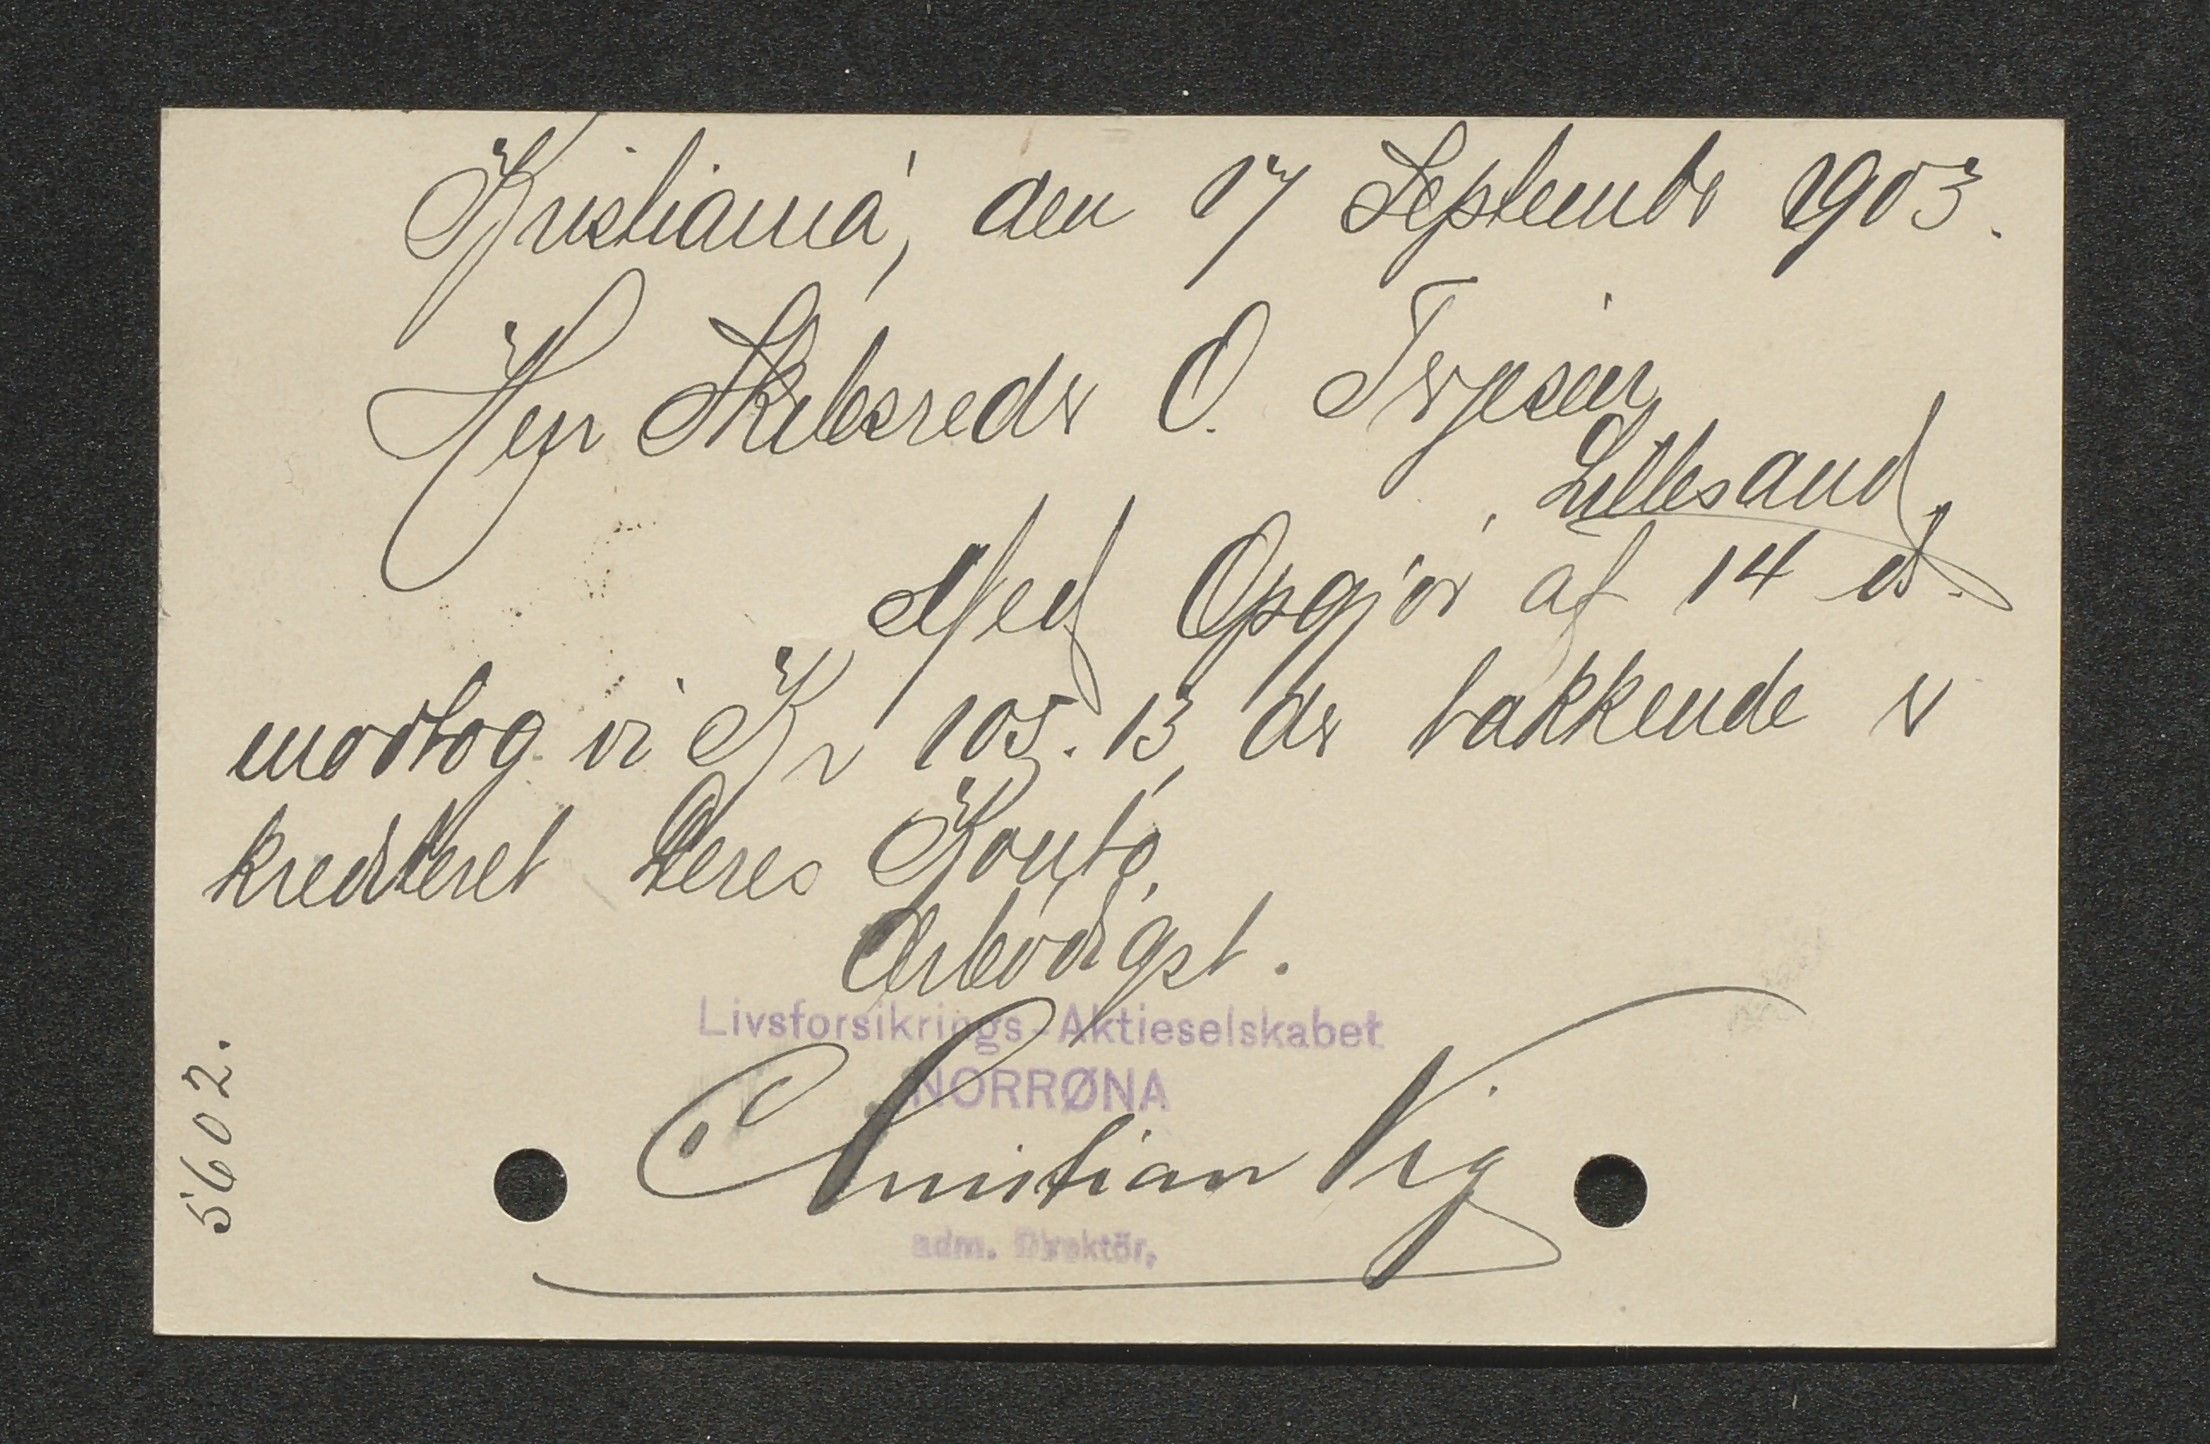 Kristiania, den 17 September 1903.
Herr Skibsreder O. Terjesen
Lillesand.
Med Opgjör af 14 ds.
modtog vi Kr 105.13, der takkende er
krediteret Deres Konto.
Ærbødigst.
Livsforsikrings-Aktieselskabet
NORRØNA
Christian Vig
adm. Direktör.
5602.